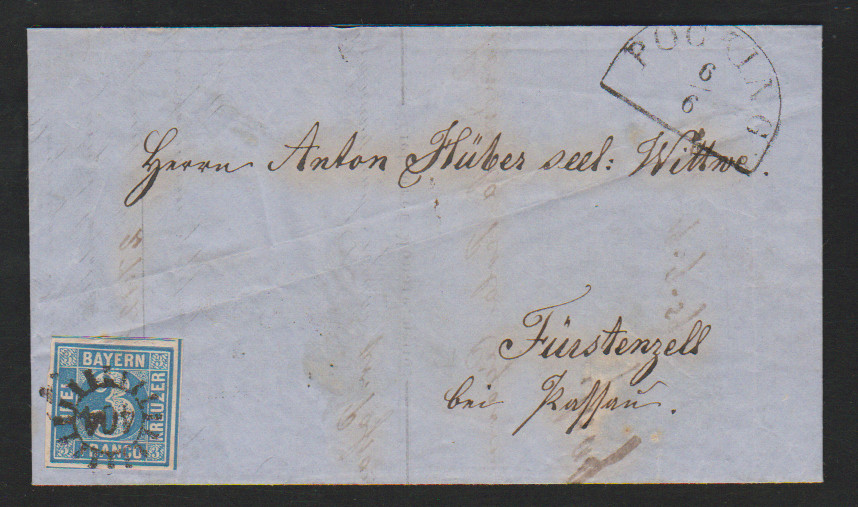 POCKING
6
6
Herrn Anton Huber seel: Wittwe.
Fürstenzell
bei Passau.
BAYERN
3
KREUZER
FRANCO